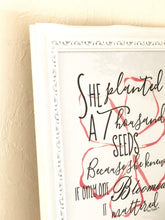 SHE planted
A Thousand
SEEDS
Because she knew
IF ONLY ONE Bloomed
IT mattered.